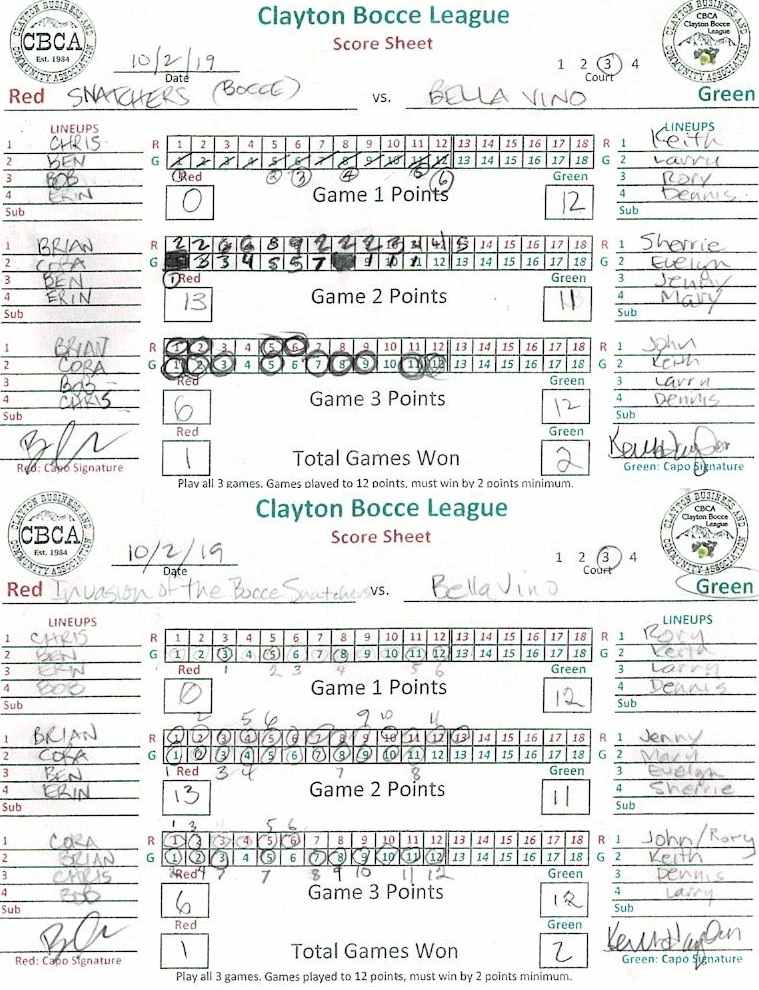 Clayton Bocce League
Score Sheet
CLAYTON BUSINESS AND COMMUNITY ASSOCIATION
CBCA
Est. 1984
CBCA
Clayton Bocce
League
10/2/19
Date
1 2 3 4
Court
Red SNATCHERS (BOCCE) vs. BELLA VINO Green
LINEUPS
1 CHRIS
2 BEN
3 BOB
4 ERIN
Sub
R 1 2 3 4 5 6 7 8 9 10 11 12 13 14 15 16 17 18 R
G 1 2 3 4 5 6 7 8 9 10 11 12 13 14 15 16 17 18 G
Red Game 1 Points Green
0 12
LINEUPS
1 Keith
2 Larry
3 Rory
4 Dennis
Sub
1 BRIAN
2 CORA
3 BEN
4 ERIN
Sub
Red Game 2 Points Green
13 11
1 Sherrie
2 Evelyn
3 Jenny
4 Mary
Sub
1 BRIAN
2 CORA
3 BOB
4 CHRIS
Sub
R 1 2 3 4 5 6 7 8 9 10 11 12 13 14 15 16 17 18 R
G 1 2 3 4 5 6 7 8 9 10 11 12 13 14 15 16 17 18 G
Red Game 3 Points Green
6 12
1 John
2 Keith
3 Larry
4 Dennis
Sub
Red Total Games Won Green
1 2
Red: Capo Signature
Green: Capo Signature
Play all 3 games. Games played to 12 points, must win by 2 points minimum.
Clayton Bocce League
Score Sheet
CLAYTON BUSINESS AND COMMUNITY ASSOCIATION
CBCA
Est. 1984
CBCA
Clayton Bocce
League
10/2/19
Date
1 2 3 4
Court
Red Invasion of the Bocce Snatchers vs. Bella Vino Green
LINEUPS
1 CHRIS
2 BEN
3 ERIN
4 BOB
Sub
R 1 2 3 4 5 6 7 8 9 10 11 12 13 14 15 16 17 18 R
G 1 2 3 4 5 6 7 8 9 10 11 12 13 14 15 16 17 18 G
1 2 3 4 5 6
Red Game 1 Points Green
0 12
LINEUPS
1 Rory
2 Keith
3 Larry
4 Dennis
Sub
1 BRIAN
2 CORA
3 BEN
4 ERIN
Sub
2 5 6 9 10 11
R 1 2 3 4 5 6 7 8 9 10 11 12 13 14 15 16 17 18 R
G 1 2 3 4 5 6 7 8 9 10 11 12 13 14 15 16 17 18 G
1 3 4 7 8
Red Game 2 Points Green
13 11
1 Jenny
2 Mary
3 Evelyn
4 Sherrie
Sub
1 CORA
2 BRIAN
3 CHRIS
4 BOB
Sub
R 1 2 3 4 5 6 7 8 9 10 11 12 13 14 15 16 17 18 R
G 1 2 3 4 5 6 7 8 9 10 11 12 13 14 15 16 17 18 G
7 8 9 10 11 12
Red Game 3 Points Green
6 12
1 John/Rory
2 Keith
3 Dennis
4 Larry
Sub
Red Total Games Won Green
1 2
Red: Capo Signature
Green: Capo Signature
Play all 3 games. Games played to 12 points, must win by 2 points minimum.